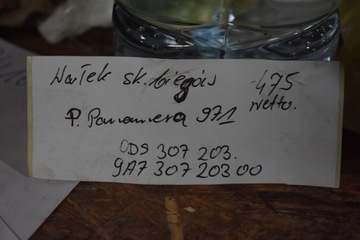 Wałek sk. biegów 475
netto.
P. Panamera 971
0D9 307 203.
9A7 307 203 00